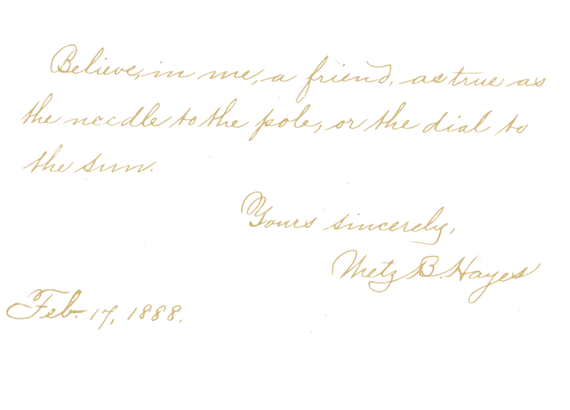 Believe, in me, a friend, as true as
the needle to the pole, or the dial to
the sun.
Yours sincerely,
Metz B. Hayes
Feb. 17, 1888.